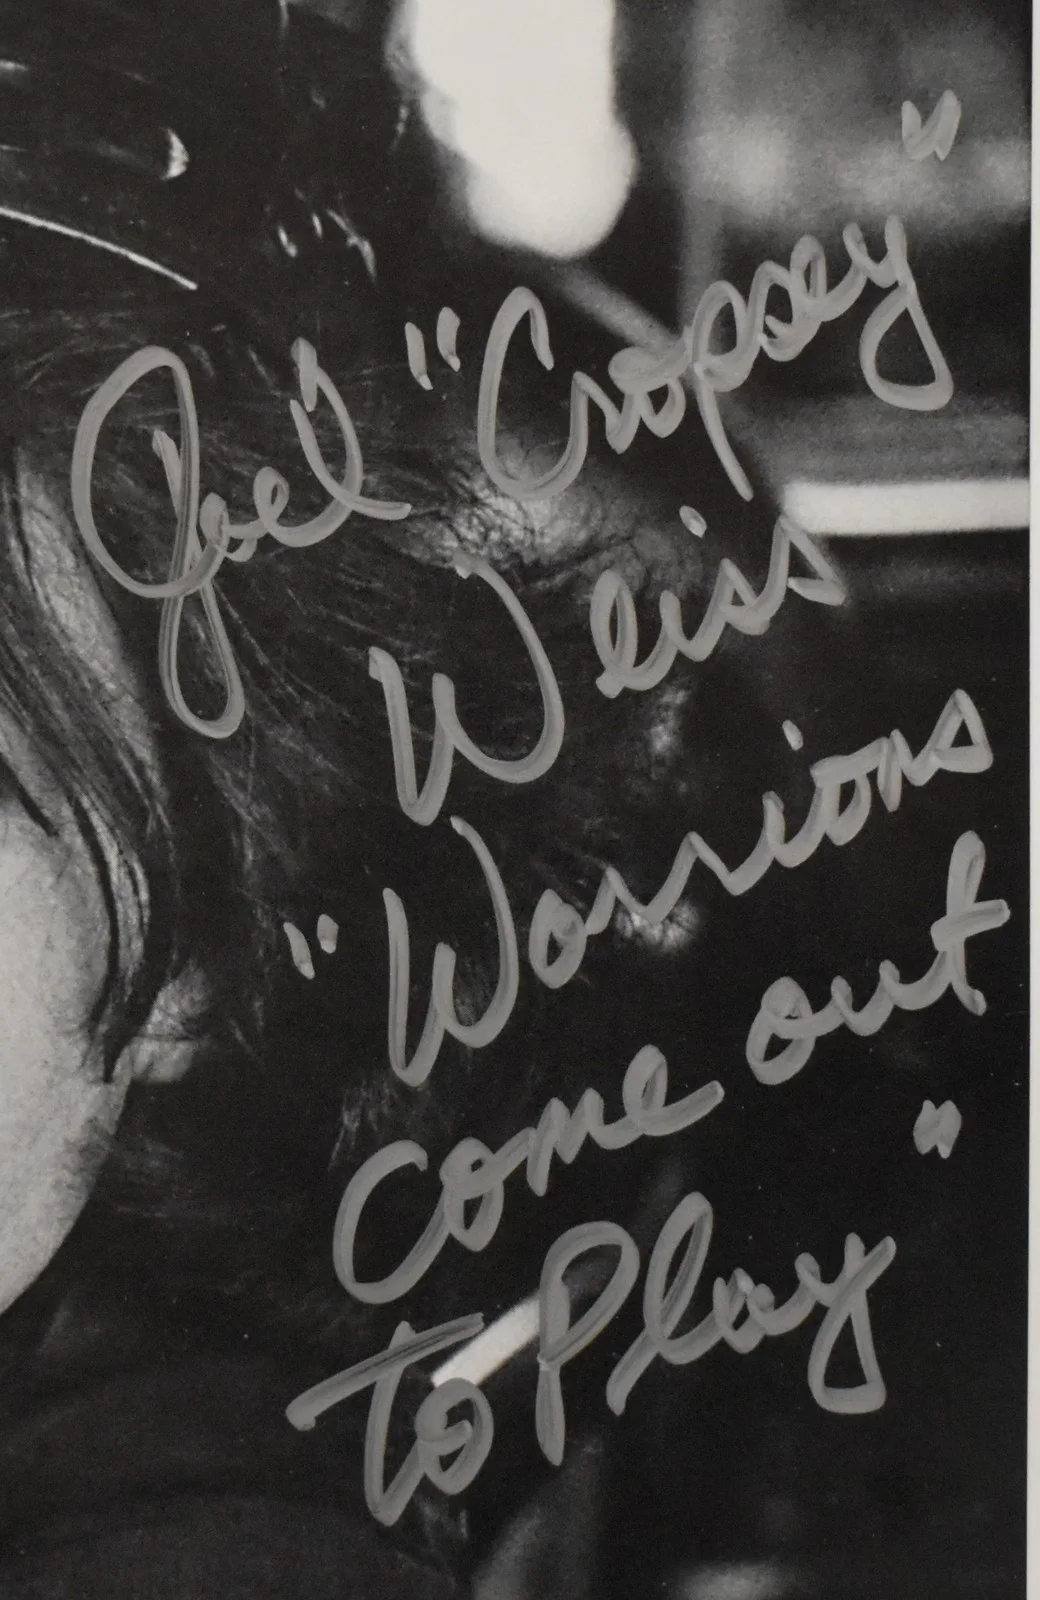 Joel "Cropsey"
Weiss
"Warriors
come out
to Play"